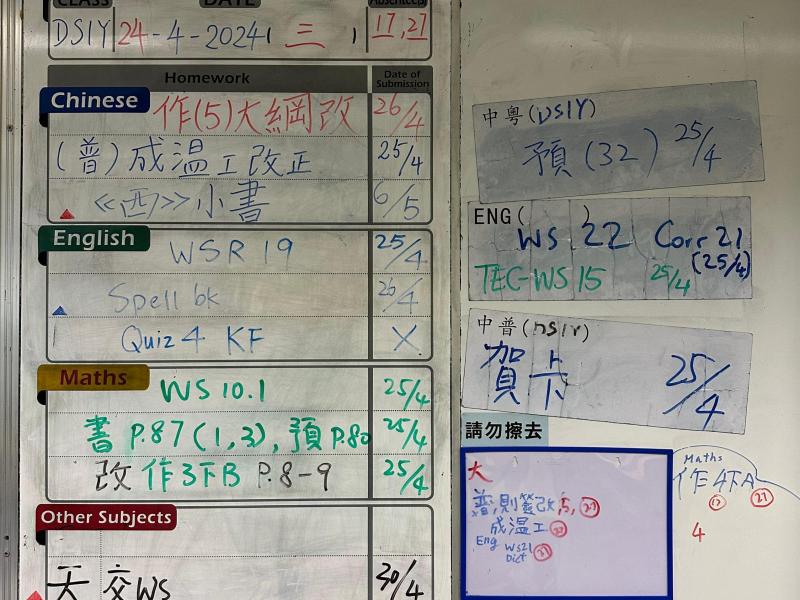 CLASS DATE Absentee(s)
DS1Y 24-4-2024(三) 17,27
Homework Date of Submission
Chinese 作(5)大綱改 26/4
(普)成溫工改正 25/4
《西》小書 6/5
English WSR 19 25/4
Spell bk 26/4
Quiz 4 KF X
Maths WS 10.1 25/4
書 P.87(1,3), 預 P.80 25/4
改 作3下B P.8-9 25/4
Other Subjects
天 交WS 30/4
中粵(DS1Y)
預(32) 25/4
ENG( )
WS 22 Corr 21
(25/4)
TEC-WS 15 25/4
中普(DS1Y)
賀卡 25/4
請勿擦去
大
普,則簽改,5,27
成溫工27
Eng WS21
Dict 27
Maths
作4下A
17 27
4